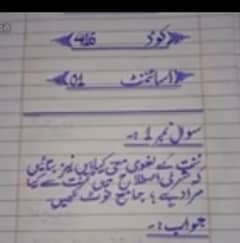 کوڈ 416
اسائنمنٹ 01
سوال نمبر 1 :-
سنت کے لغوی معنی کیا ہیں نیز بتائیں
کہ شرعی اصطلاح میں سنت سے کیا
مراد ہے؟ جامع نوٹ لکھیں
جواب :-